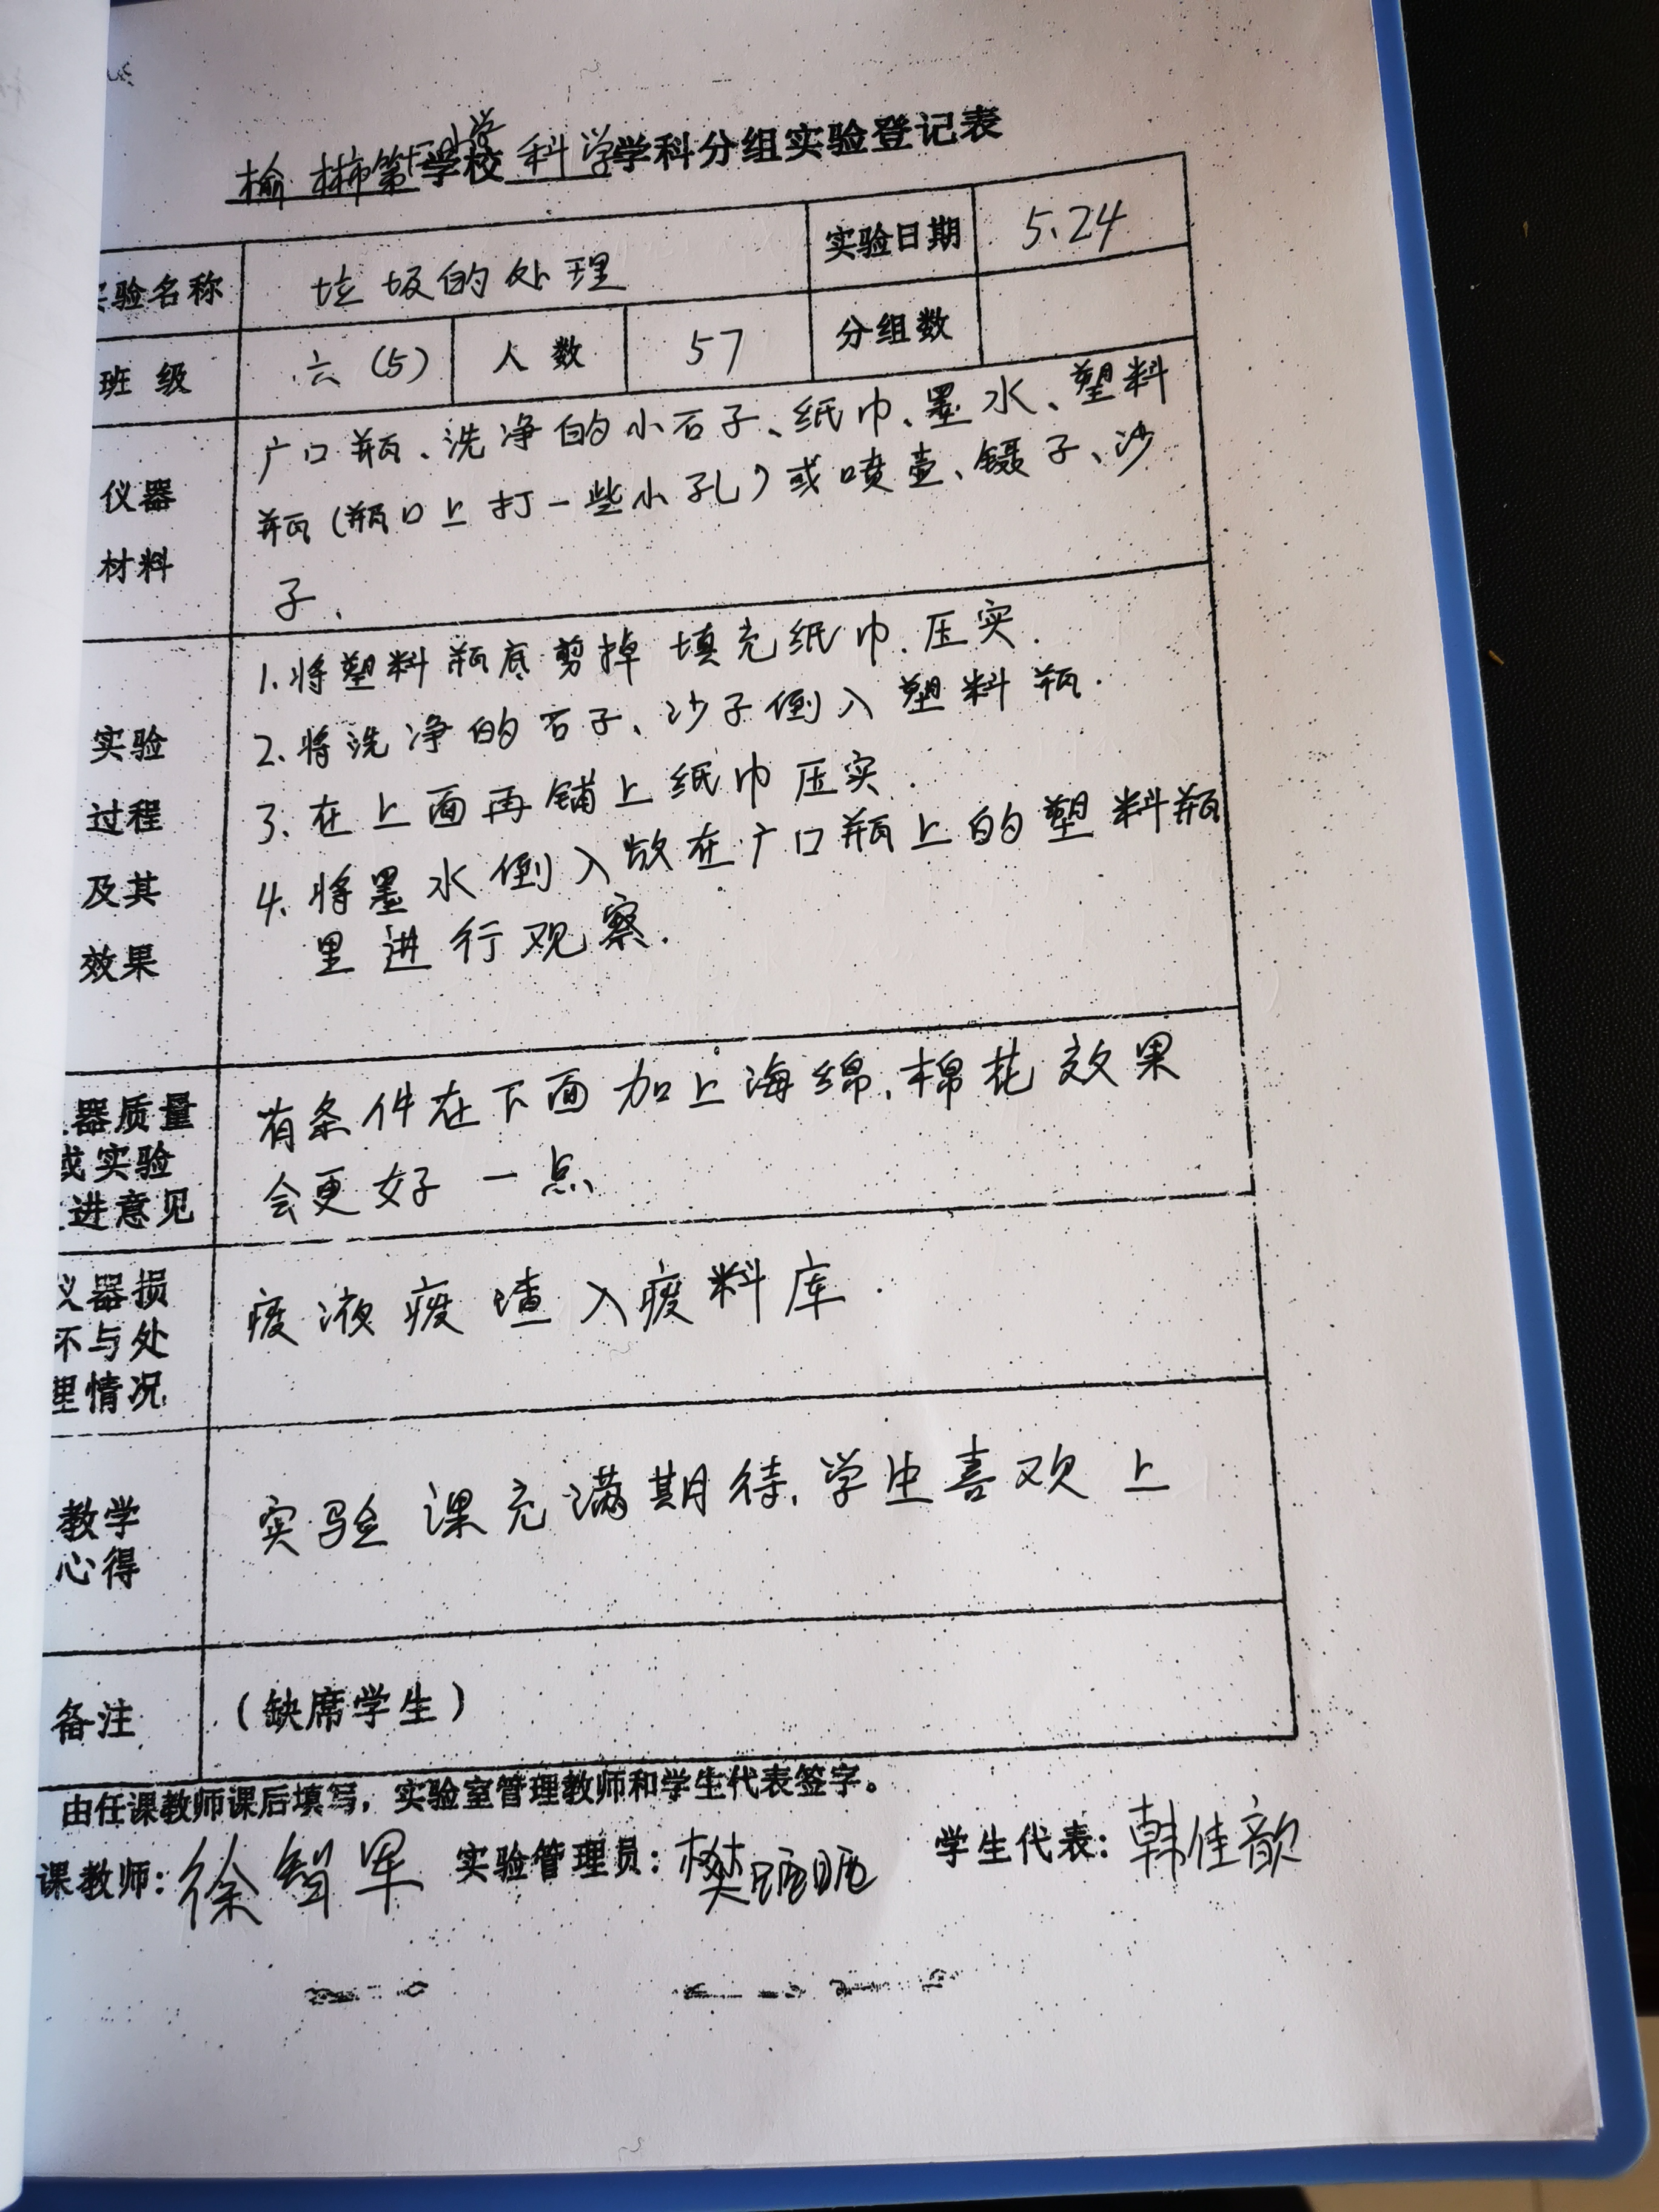 榆林第十小学学校科学学科分组实验登记表
验名称 垃圾的处理 实验日期 5.24
班级 六(5) 人数 57 分组数
仪器
材料
广口瓶、洗净的小石子、纸巾、墨水、塑料
瓶(瓶口上打一些小孔)或喷壶、镊子、沙
子.
实验
过程
及其
效果
1.将塑料瓶底剪掉填充纸巾.压实.
2.将洗净的石子、沙子倒入塑料瓶.
3.在上面再铺上纸巾压实.
4.将墨水倒入放在广口瓶上的塑料瓶
里进行观察.
器质量
或实验
进意见
有条件在下面加上海绵、棉花效果
会更好一点
仪器损
坏与处
理情况
废液废渣入废料库.
教学
心得
实验课充满期待,学生喜欢上
备注 (缺席学生)
由任课教师课后填写,实验室管理教师和学生代表签字。
课教师:徐智军 实验管理员:樊 学生代表:韩佳歆